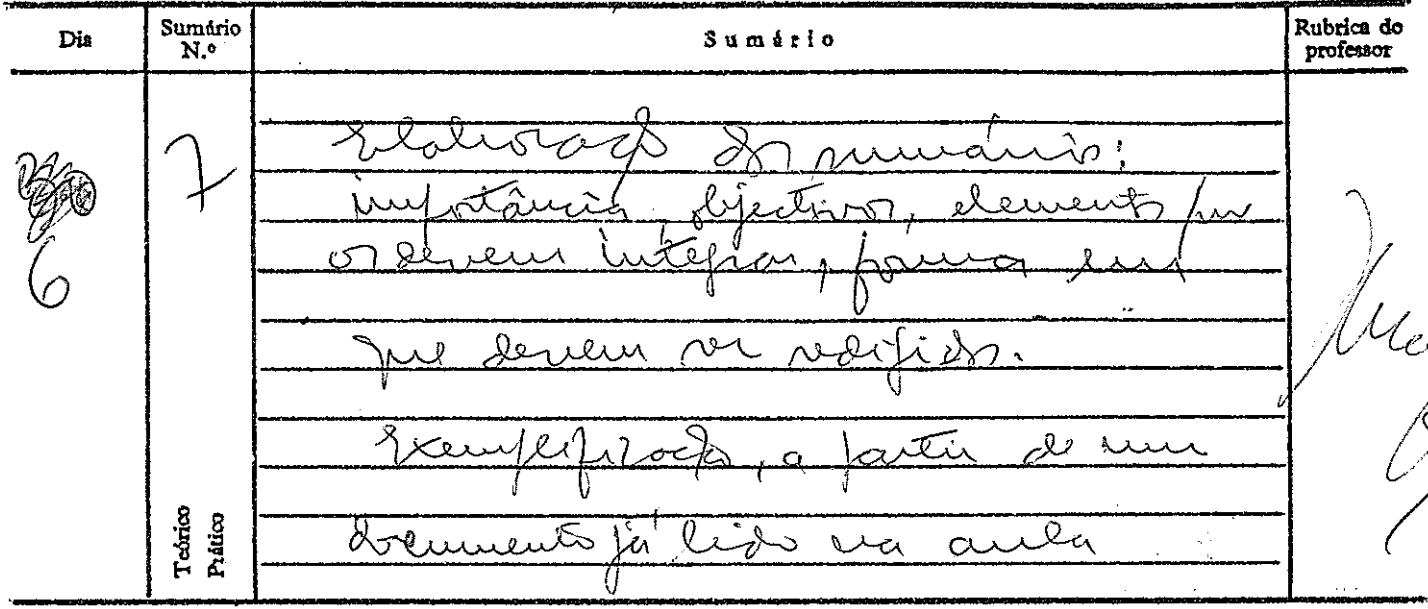 Dia
Sumário N.º
Sumário
Rubrica do professor
6
7
Elaboração de sumários:
importância, objectivos, elementos que
os devem integrar, forma em
que devem ser redigidos.
Exemplificação, a partir de um
documento já lido na aula
Teórico
Prático